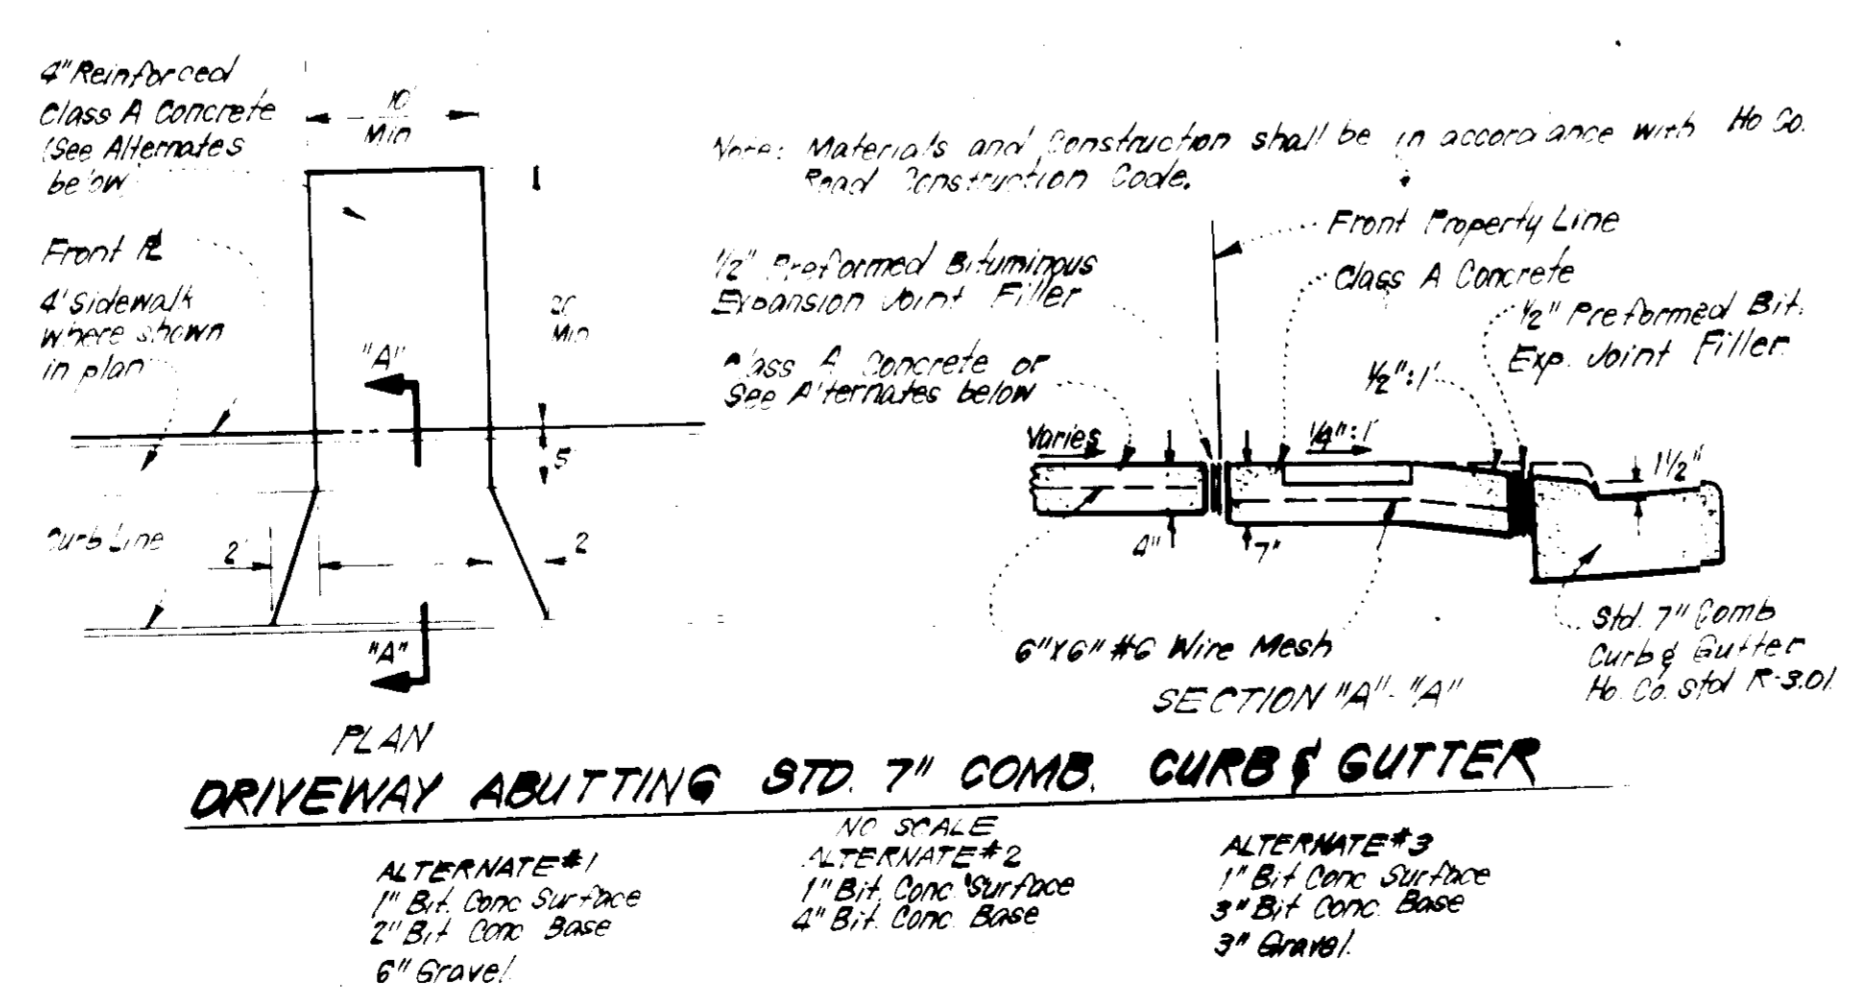 4" Reinforced
Class A Concrete
(See Alternates
below)
10'
Min
Front PL
4' Sidewalk
where shown
in plan
"A"
20'
Min
5'
Curb Line
2'
2
"A"
PLAN
Note: Materials and Construction shall be in accordance with Ho Co.
Road Construction Code.
Front Property Line
1/2" Preformed Bituminous
Expansion Joint Filler
Class A Concrete
1/2" Preformed Bit.
Exp. Joint Filler
Class A Concrete or
See Alternates below
1/2":1'
Varies
1/4":1'
1 1/2"
4"
7"
6"X6" #6 Wire Mesh
Std. 7" Comb
Curb & Gutter
Ho. Co. Std R-3.01.
SECTION "A"-"A"
DRIVEWAY ABUTTING STD. 7" COMB. CURB & GUTTER
NO SCALE
ALTERNATE #1
1" Bit. Conc Surface
2" Bit Conc Base
6" Gravel.
ALTERNATE #2
1" Bit. Conc. Surface
4" Bit. Conc. Base
ALTERNATE #3
1" Bit Conc Surface
3" Bit Conc. Base
3" Gravel.